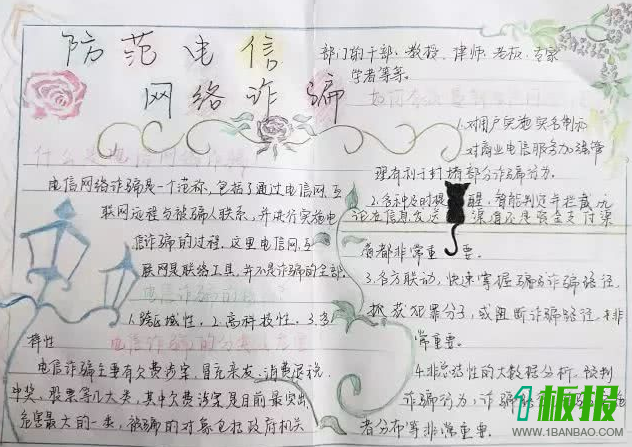 防范电信
网络诈骗
什么是电信网络诈骗
电信网络诈骗是一个范称,包括了通过电信网、互
联网远程与被骗人联系,并进行实施电
信诈骗的过程。这里电信网、互
联网是联络工具,并不是诈骗的全部。
电信诈骗的
1.跨区域性。2.高科技性。3.多
样性
电信诈骗的
电信诈骗主要有欠费涉案、冒充亲友、消费退税、
中奖、股票等几大类,其中欠费涉案是目前最突出、
危害最大的一类,被骗的对象包括政府机关
部门的干部、教授、律师、老板、专家
学者等等。
1.对用户实施实名制和
对商业电信服务加强管
理有利于封堵部分诈骗行为。
2.各种及时提醒,智能判定并拦截,无
论在信息发送渠道还是资金支付渠
道都非常重要。
3.各方联动,快速掌握骗子诈骗路径,
抓获犯罪分子,或阻断诈骗路径,非
常重要。
4.非总结性的大数据分析,预判
诈骗行为,诈骗
者分布等非常重要
1板报
WWW.1BANBAO.COM